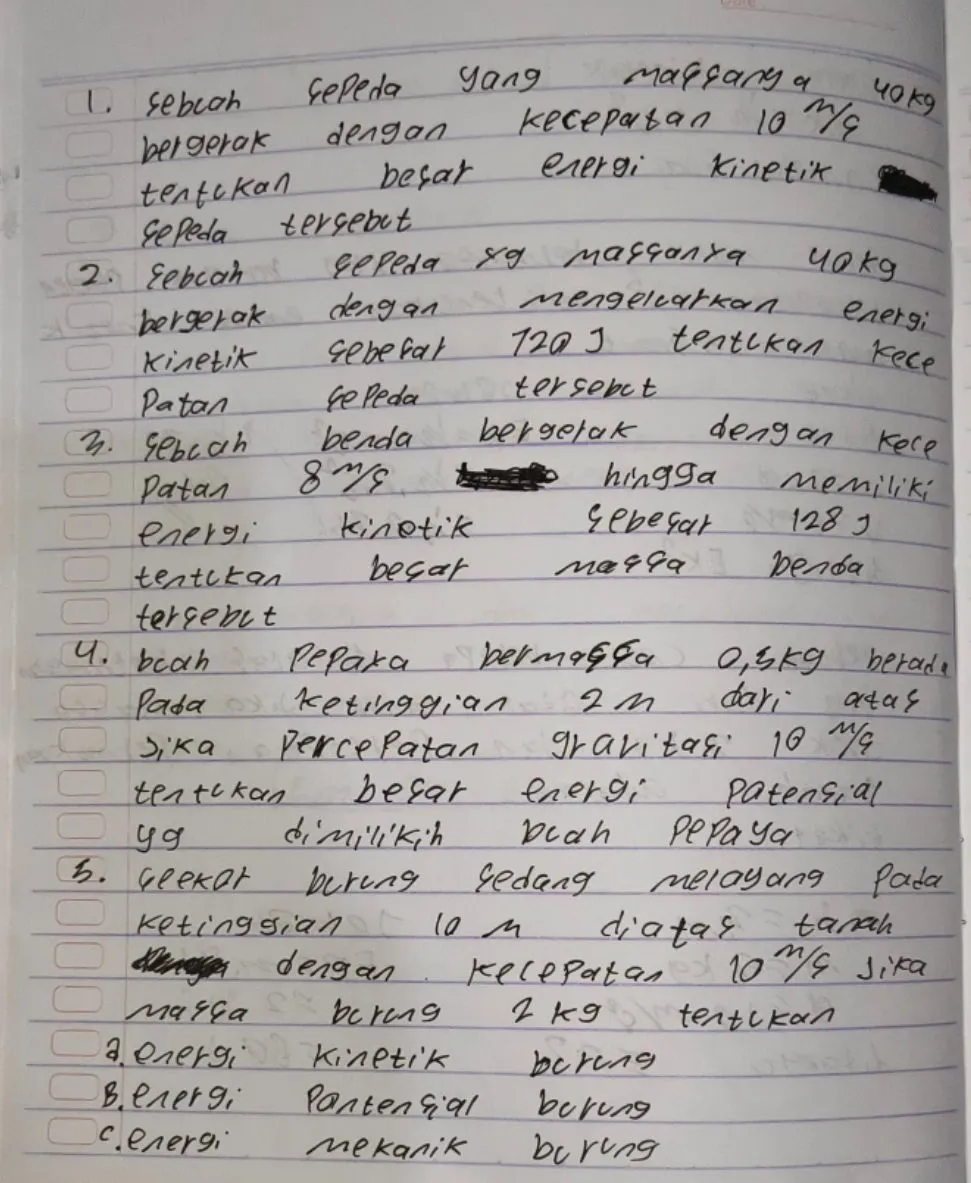 1. sebuah sepeda yang massanya 40 kg
bergerak dengan kecepatan 10 m/s
tentukan besar energi kinetik
sepeda tersebut
2. sebuah sepeda yg massanya 40 kg
bergerak dengan mengeluarkan energi
kinetik sebesar 720 J tentukan kece
patan sepeda tersebut
3. sebuah benda bergerak dengan kece
patan 8 m/s hingga memiliki
energi kinetik sebesar 128 J
tentukan besar massa benda
tersebut
4. buah pepaya bermassa 0,5 kg berada
pada ketinggian 2 m dari atas
Jika percepatan gravitasi 10 m/s
tentukan besar energi patensial
yg dimilikih buah pepaya
5. seekor burung sedang melayang pada
ketinggian 10 m diatas tanah
dengan kecepatan 10 m/s Jika
massa burung 2 kg tentukan
a. energi kinetik burung
B. energi pantensial burung
c. energi mekanik burung